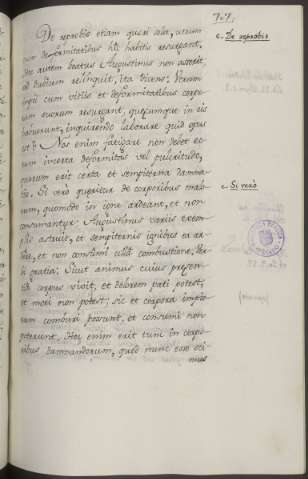 707.
De reprobis etiam quæri solet, utrum
cum deformitatibus hîc habitis resurgant.
Hoc autem beatus Augustinus non asserit,
sed dubium relinquit, ita dicens: Utrum
ipsi cum vitiis et deformitatibus corpo-
rum suorum resurgant, quæcumque in eis
habuerunt, inquirendo laborare quid opus
est? Non enim fatigare nos debet eo-
rum incerta deformitas vel pulchritudo,
quorum erit certa et sempiterna damna-
tio. Si verò quæritur de corporibus malo-
rum, quomodo in igne ardeant, et non
consumantur: Augustinus variis exem-
plis astruit, et sempiternis ignibus ex ar-
dere, et non consumi illâ combustione, Ver-
bi gratia; Sicut animus cuius præsen-
tiâ corpus vivit, et dolorem pati potest,
et mori non potest; sic et corpora impio-
rum comburi possunt, et consumi non
poterunt. Hoc enim erit tunc in corpo-
ribus damnatorum, quod nunc esse sci-
mus
c. De reprobis
c. Si verò